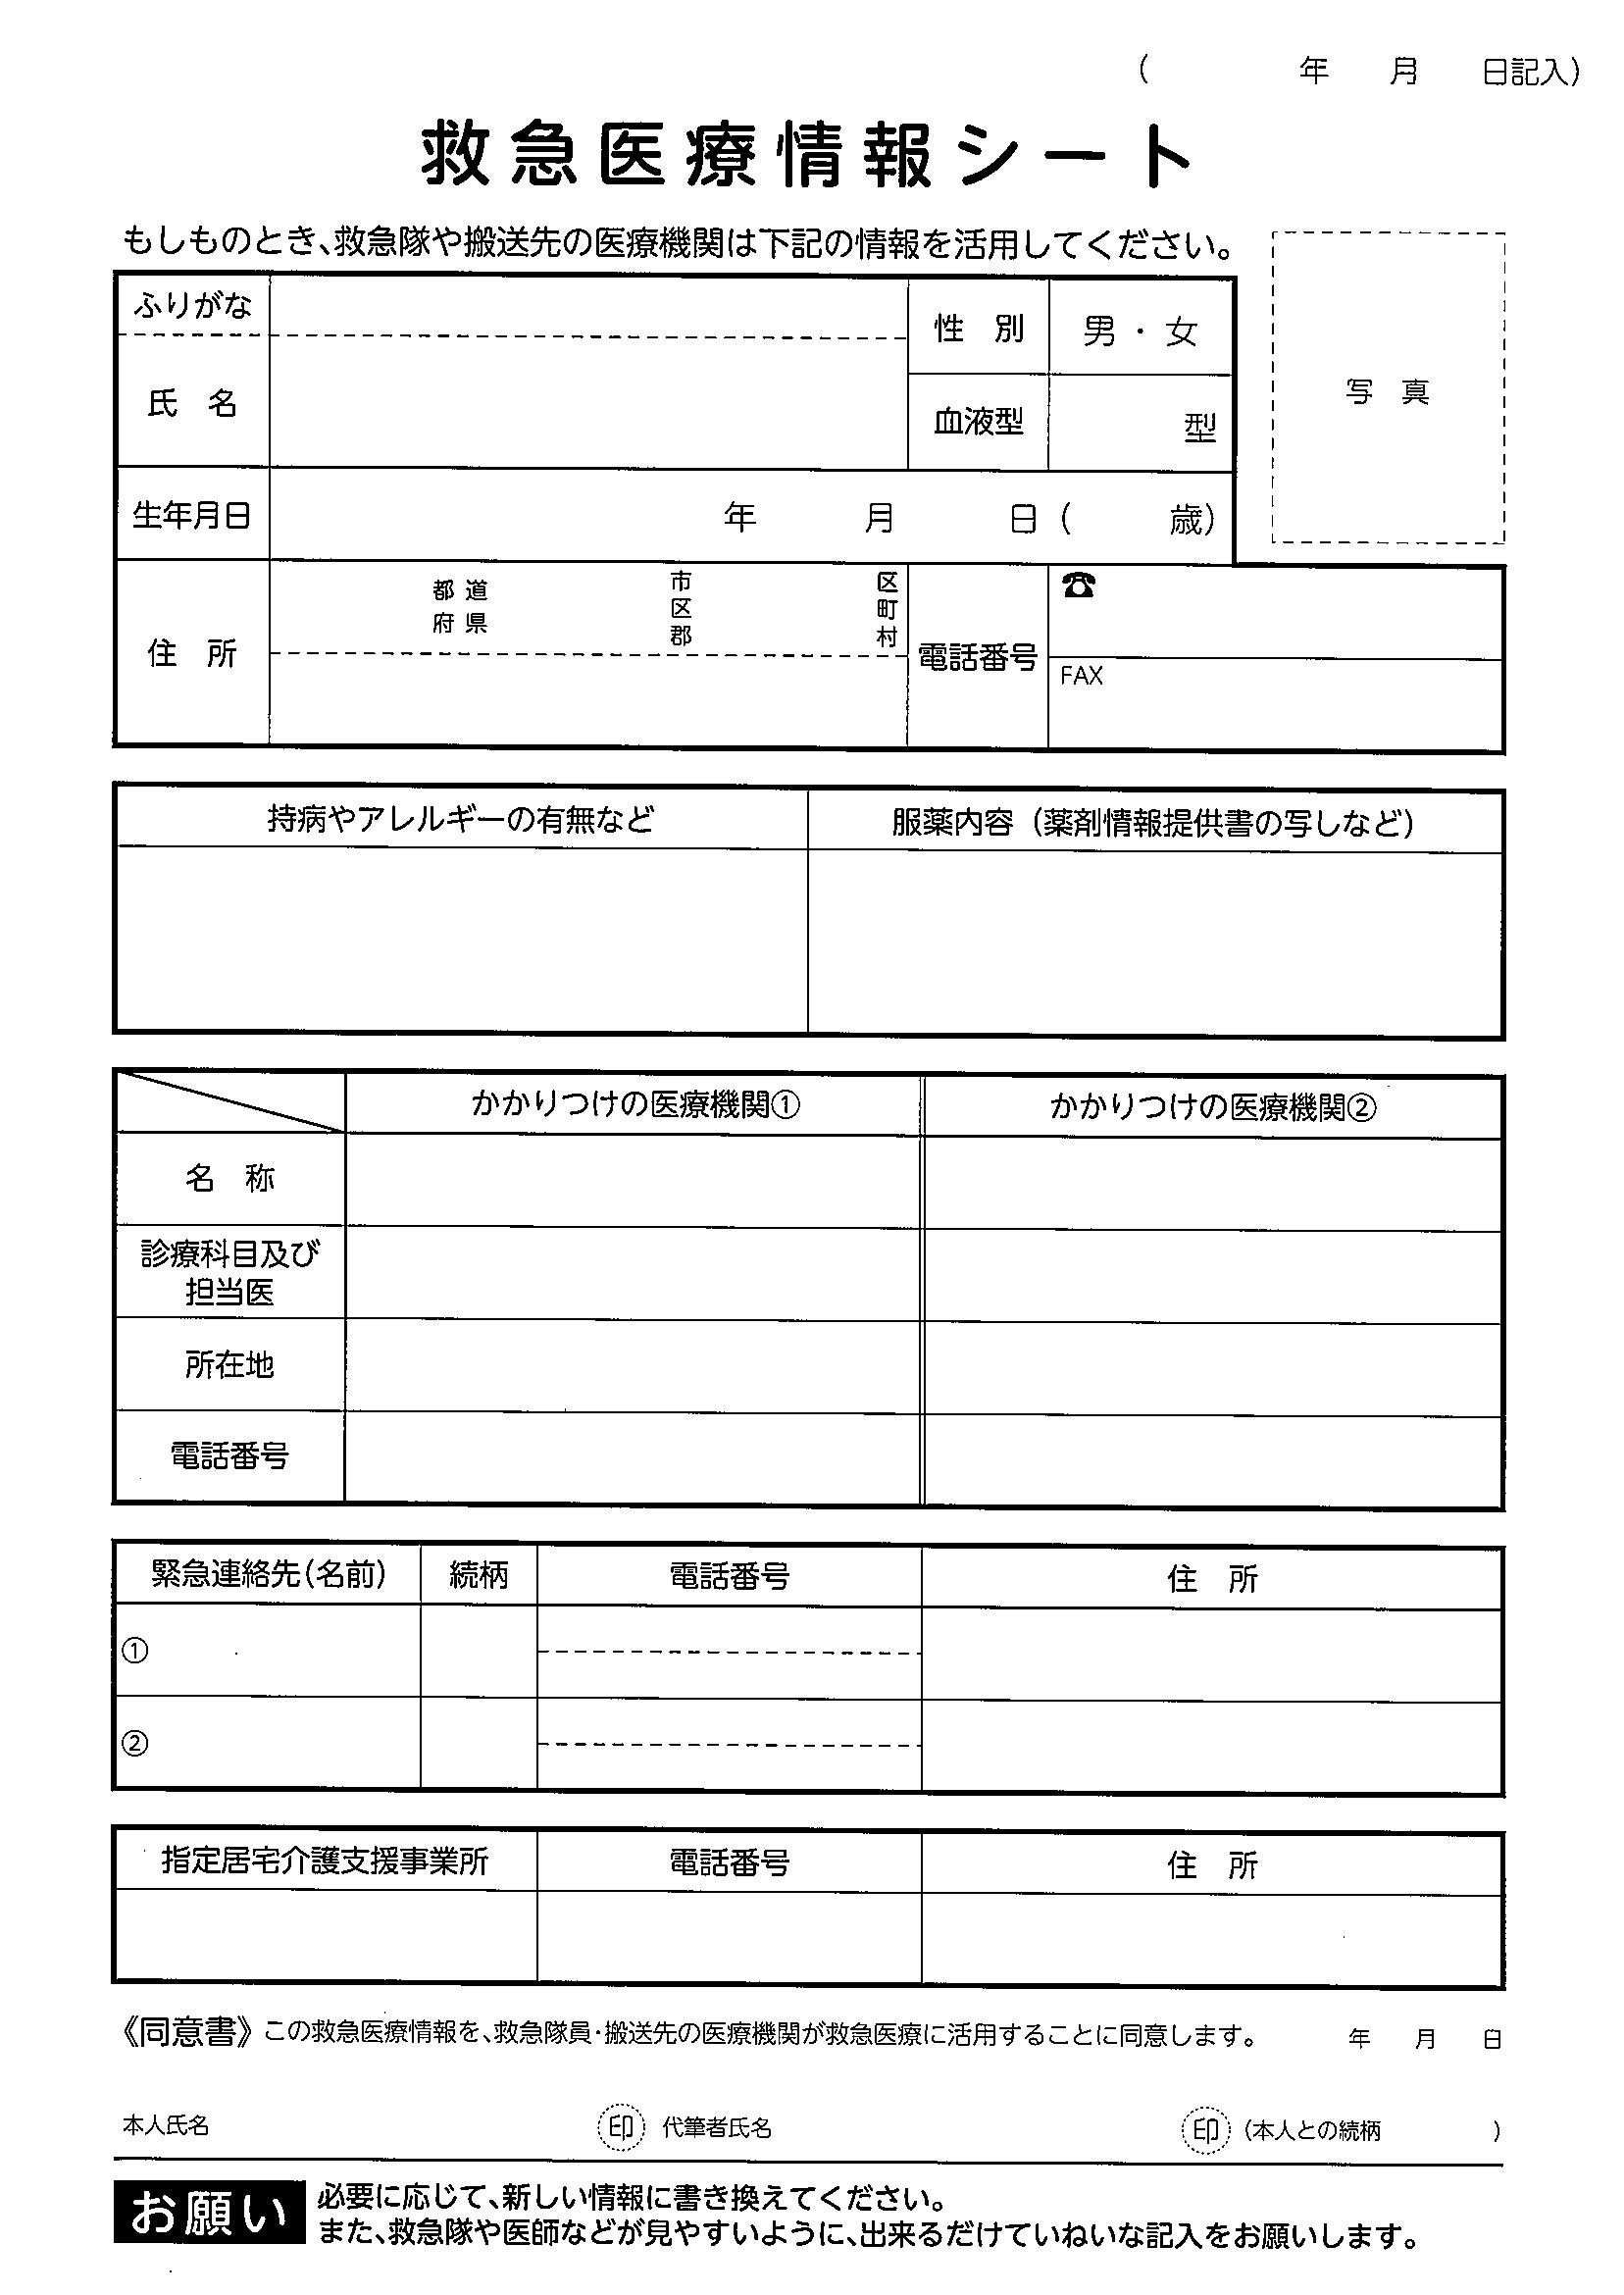 （　　　　年　　月　　日記入）
救急医療情報シート
もしものとき、救急隊や搬送先の医療機関は下記の情報を活用してください。
写　真
ふりがな
氏　名
性　別
男・女
血液型
型
生年月日
年　　月　　日（　　歳）
住　所
都道府県
市区郡
区町村
電話番号
☎
FAX
持病やアレルギーの有無など
服薬内容（薬剤情報提供書の写しなど）
かかりつけの医療機関①
かかりつけの医療機関②
名　称
診療科目及び
担当医
所在地
電話番号
緊急連絡先（名前）
続柄
電話番号
住　所
①
②
指定居宅介護支援事業所
電話番号
住　所
《同意書》この救急医療情報を、救急隊員・搬送先の医療機関が救急医療に活用することに同意します。　　年　　月　　日
本人氏名　　　　印　代筆者氏名　　　　印（本人との続柄　　　　）
お願い
必要に応じて、新しい情報に書き換えてください。
また、救急隊や医師などが見やすいように、出来るだけていねいな記入をお願いします。